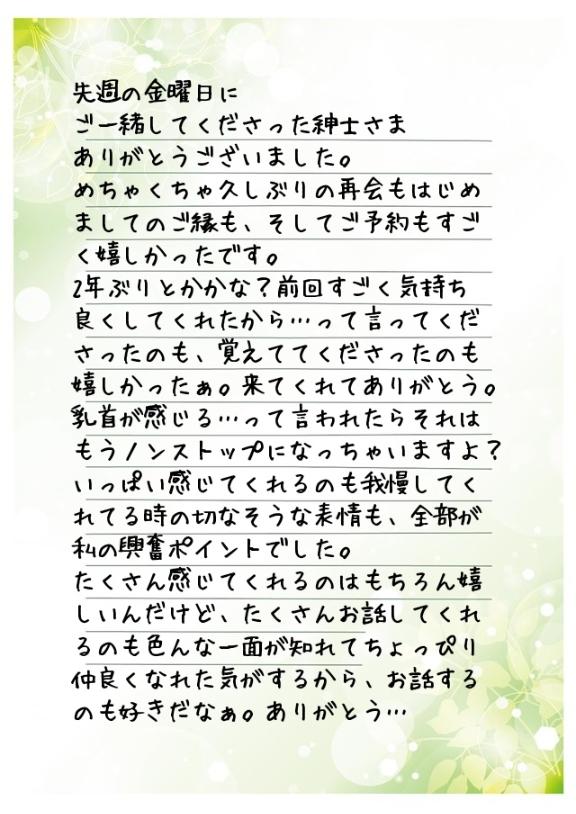 先週の金曜日に
ご一緒してくださった紳士さま
ありがとうございました。
めちゃくちゃ久しぶりの再会もはじめ
ましてのご縁も、そしてご予約もすご
く嬉しかったです。
2年ぶりとかかな？前回すごく気持ち
良くしてくれたから…って言ってくだ
さったのも、覚えててくださったのも
嬉しかったぁ。来てくれてありがとう。
乳首が感じる…って言われたらそれは
もうノンストップになっちゃいますよ？
いっぱい感じてくれるのも我慢してく
れてる時の切なそうな表情も、全部が
私の興奮ポイントでした。
たくさん感じてくれるのはもちろん嬉
しいんだけど、たくさんお話してくれ
るのも色んな一面が知れてちょっぴり
仲良くなれた気がするから、お話する
のも好きだなぁ。ありがとう…